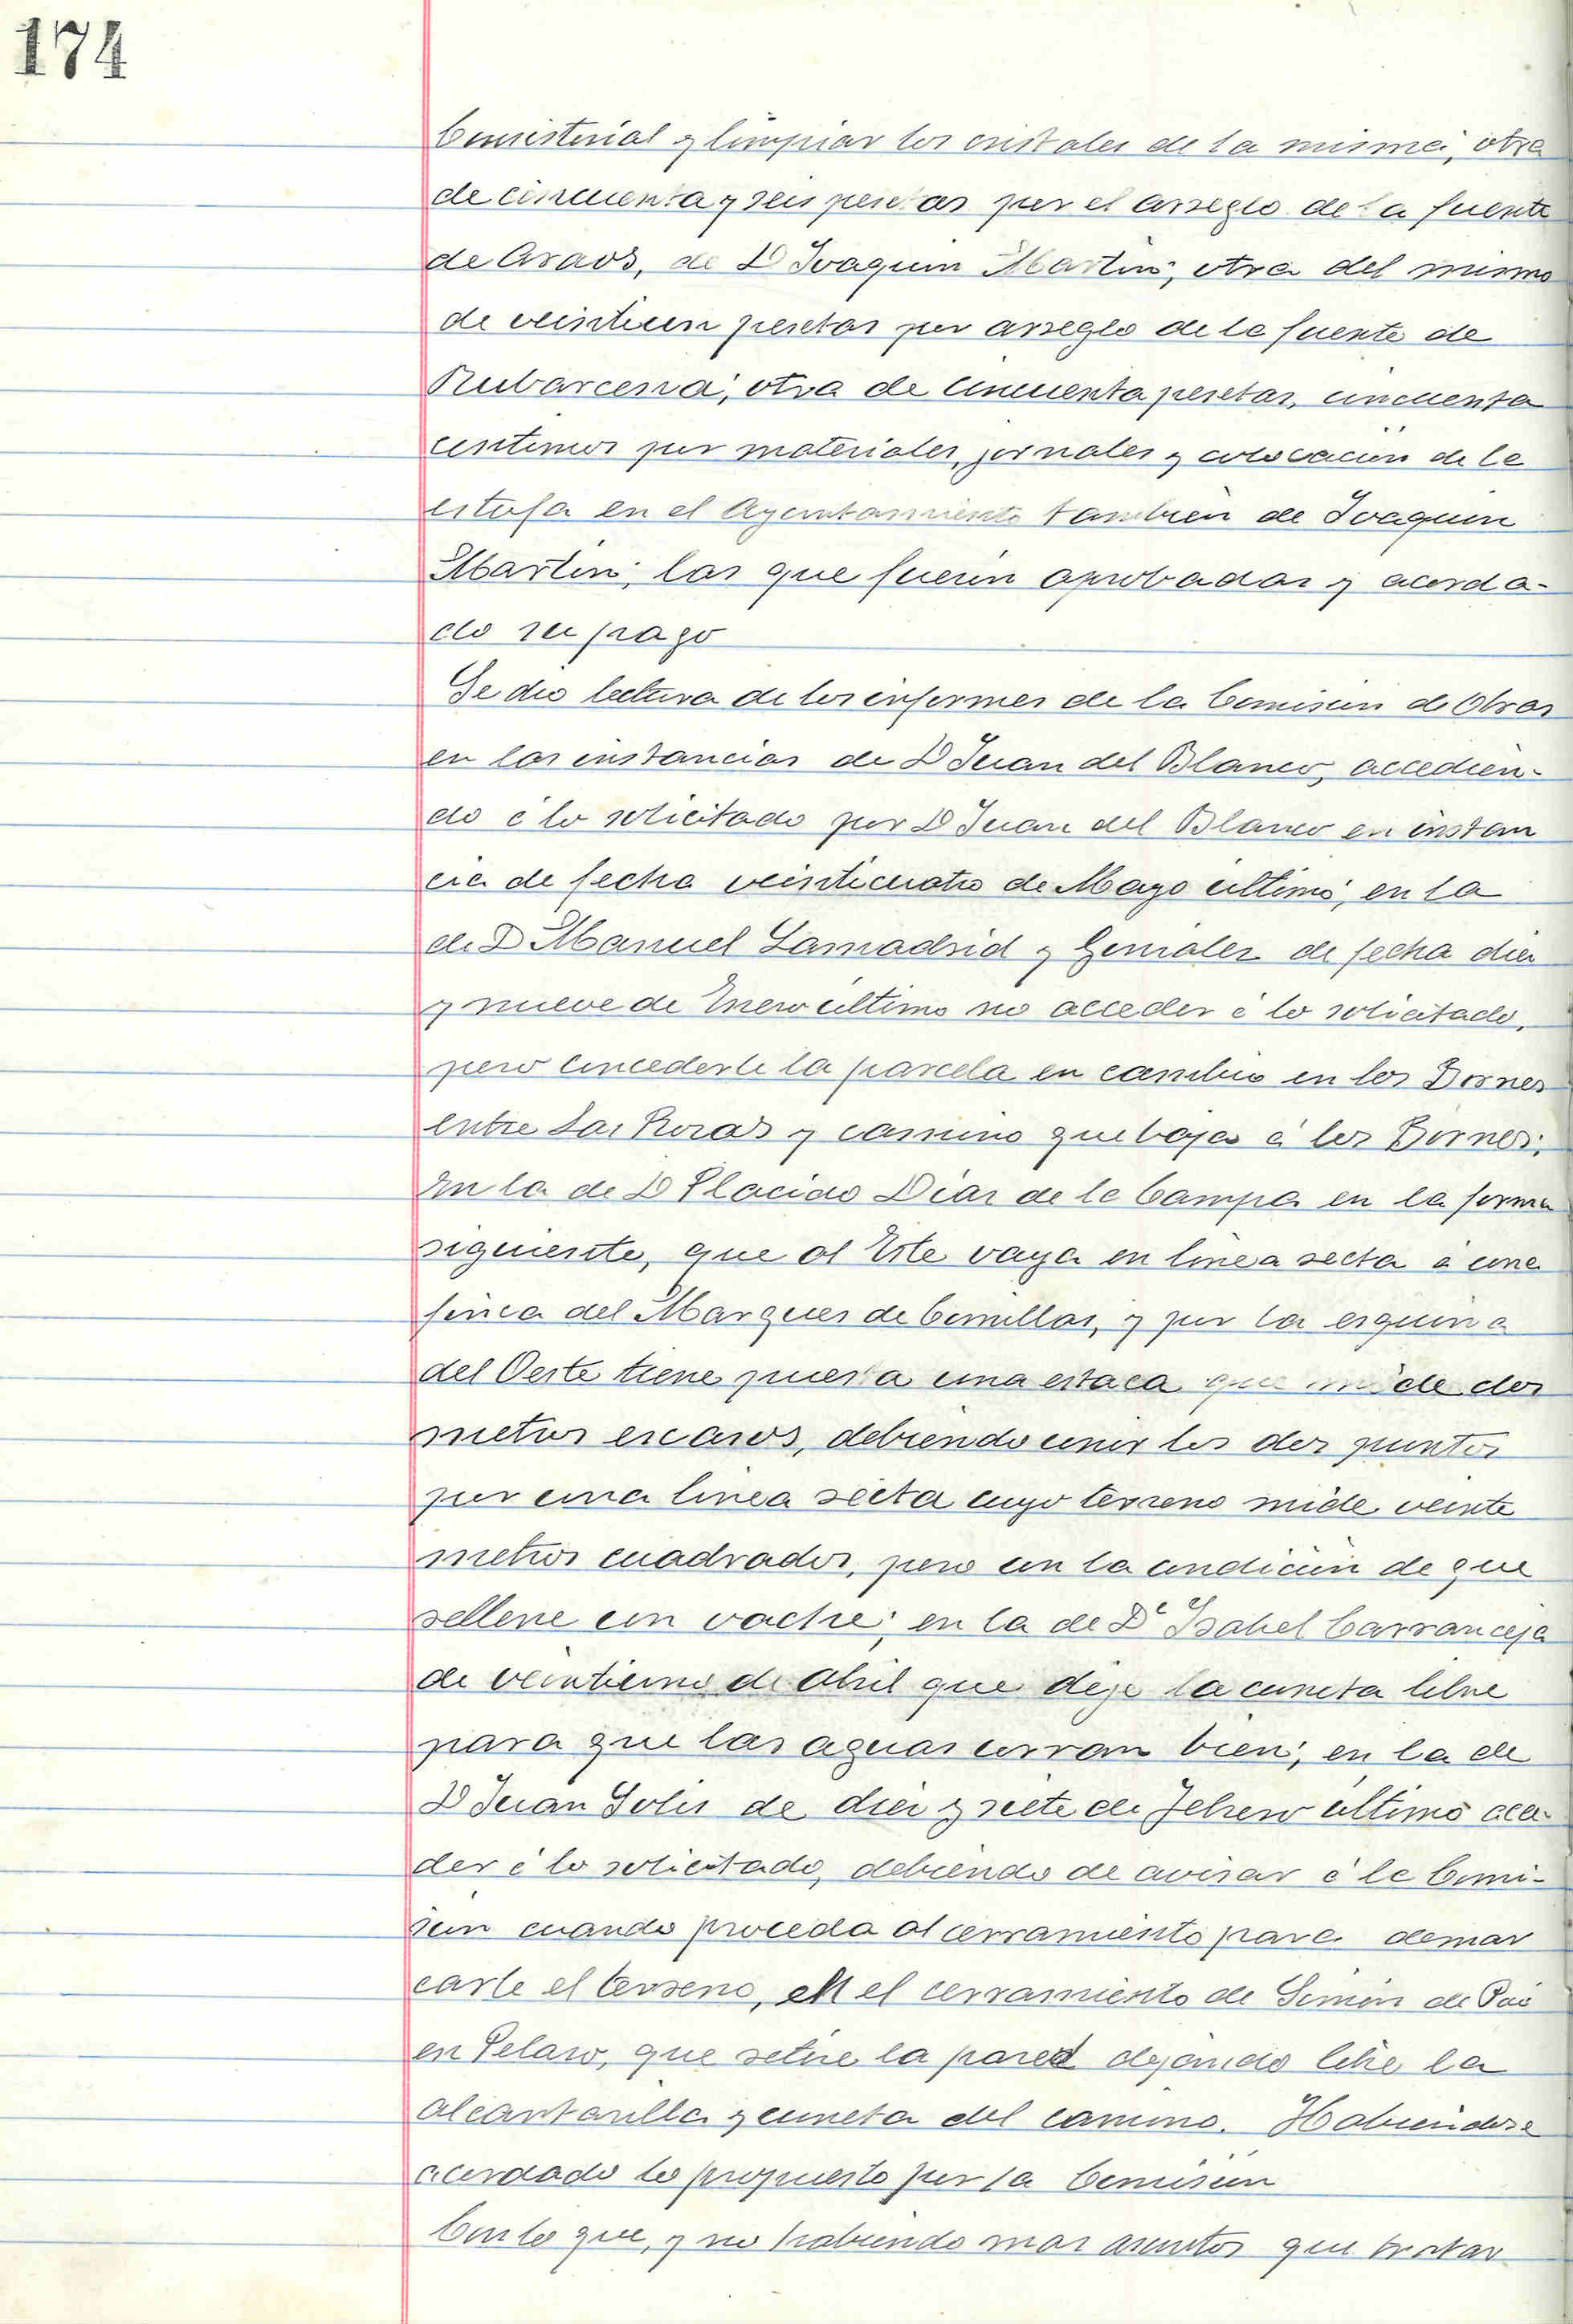 174
Consistorial y limpiar los cristales de la misma; otra
de cincuenta y seis pesetas por el arreglo de la fuente
de Araos, de D Joaquin Martin; otra del mismo
de veintiun pesetas por arreglo de la fuente de
Rubarcena; otra de cincuenta pesetas, cincuenta
centimos por materiales, jornales y colocación de la
estufa en el Ayuntamiento tambien de Joaquin
Martin; las que fueron aprobadas y acorda-
do su pago
Se dio lectura de los informes de la Comision de Obras
en las instancias de D Juan del Blanco, accedien-
do á lo solicitado por D Juan del Blanco en instan
cia de fecha veinticuatro de Mayo último; en la
de D Manuel Lamadrid y Gonzalez de fecha diez
y nueve de Enero último no acceder á lo solicitado,
pero concederle la parcela en cambio en los Bornes
entre Las Rozas y camino que baja á los Bornes;
En la de D Placido Diaz de la Campa en la forma
siguiente, que al Este vaya en linea recta á una
finca del Marques de Comillas, y por la esquina
del Oeste tiene puesta una estaca que mide dos
metros escasos, debiendo unir los dos puntos
por una linea recta cuyo terreno mide veinte
metros cuadrados, pero con la condición de que
rellene un vache; en la de Dª Isabel Carranceja
de veintiuno de Abril que deje la cuneta libre
para que las aguas corran bien; en la de
D Juan Solis de diez y siete de Febrero último acce-
der á lo solicitado, debiendo de avisar á la Comi-
sión cuando proceda al cerramiento para demar
carle el terreno, en el cerramiento de Simón de Poo
en Velazo, que retire la pared dejando libre la
alcantarilla y cuneta del camino. Habiendose
acordado lo propuesto por la Comision
Con lo que, y no habiendo mas asuntos que tratar